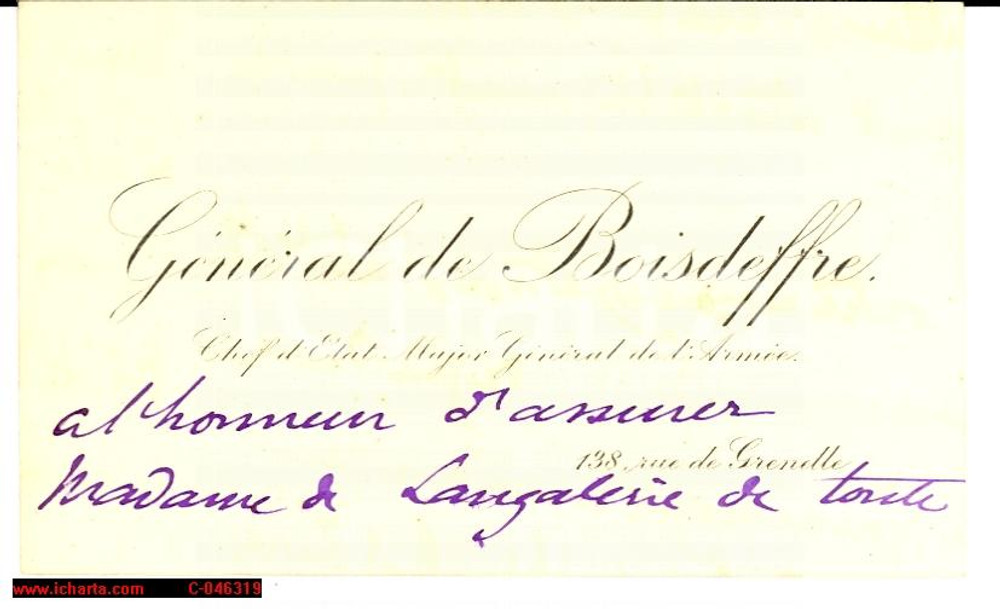 Général de Boisdeffre.
Chef d'Etat Major Général de l'Armée.
a l'honneur d'assurer
138, rue de Grenelle
Madame de Langalerie de toute
www.icharta.com C-046319